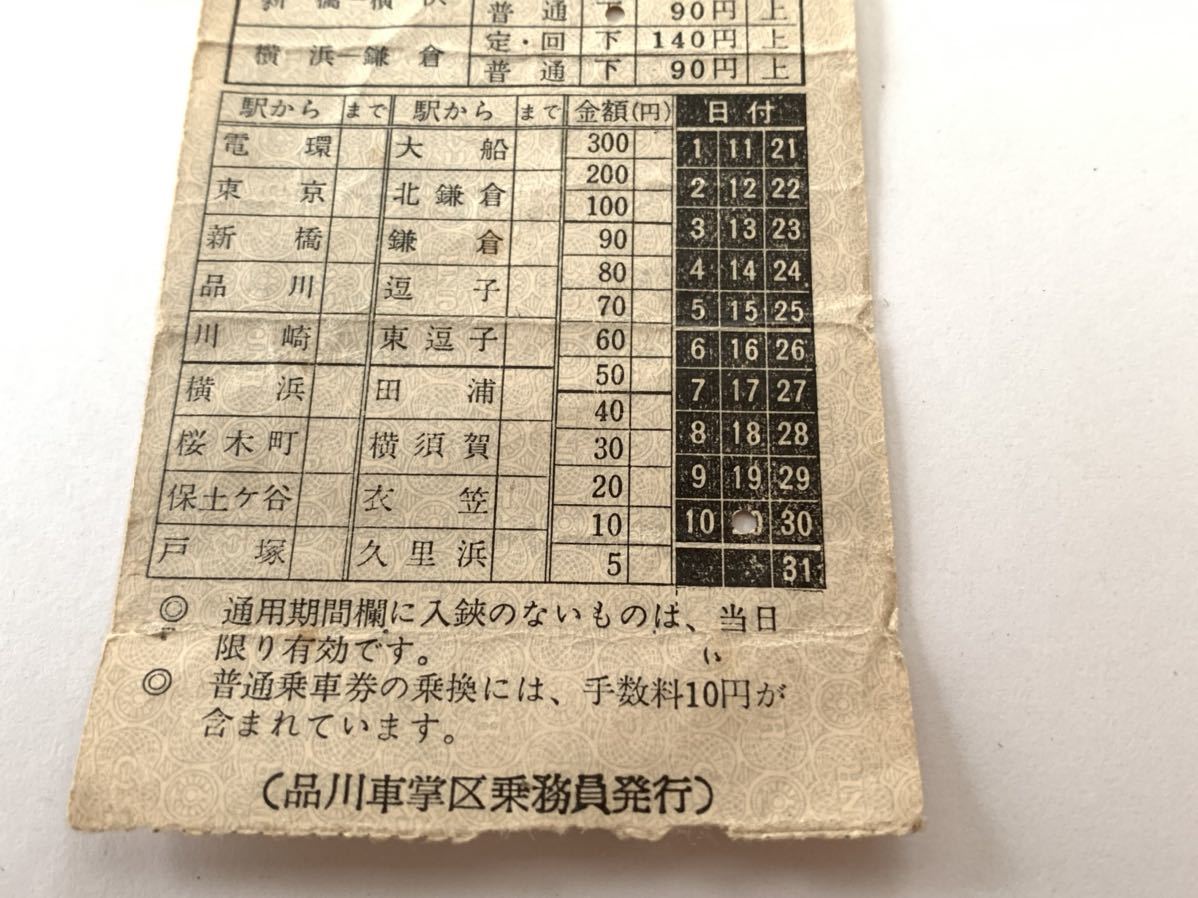 新橋―横浜 普通 下 90円 上
横浜―鎌倉 定・回 下 140円 上
普通 下 90円 上
駅から まで 駅から まで 金額(円) 日付
電環 大船 300 1 11 21
東京 北鎌倉 200 2 12 22
新橋 鎌倉 100 3 13 23
品川 逗子 90 4 14 24
川崎 東逗子 80 5 15 25
横浜 田浦 70 6 16 26
桜木町 横須賀 60 7 17 27
保土ケ谷 衣笠 50 8 18 28
戸塚 久里浜 40 9 19 29
30 10 30
20 31
10
5
◎ 通用期間欄に入鋏のないものは、当日
限り有効です。
◎ 普通乗車券の乗換には、手数料10円が
含まれています。
(品川車掌区乗務員発行)